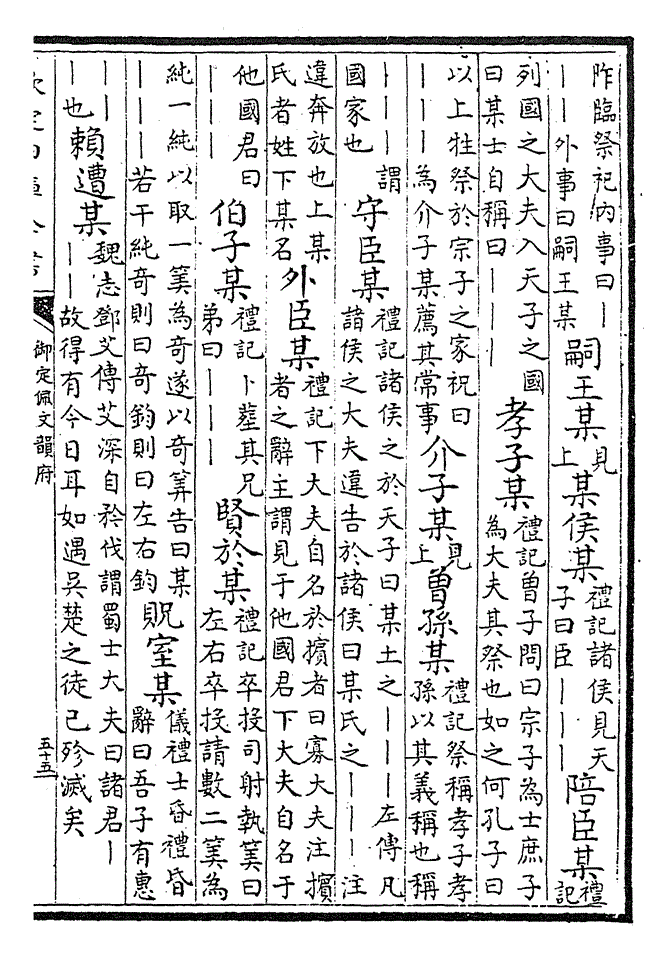 阼臨祭祀內事曰丨丨丨外事曰嗣王某 嗣王某 見上 某侯某 禮記諸侯見天子曰臣丨丨丨 陪臣某 禮記
列國之大夫入天子之國曰某士自稱曰丨丨丨 孝子某 禮記曾子問曰宗子為士庶子為大夫其祭也如之何孔子曰
以上牲祭於宗子之家祝曰丨丨丨為介子某薦其常事 介子某 見上 曾孫某 禮記祭稱孝子孝孫以其義稱也稱
丨丨丨謂國家也 守臣某 禮記諸侯之於天子曰某土之丨丨丨左傳凡諸侯之大夫違告於諸侯曰某氏之丨丨丨注
違奔放也上某氏者姓下某名 外臣某 禮記下大夫自名於擯者曰寡大夫注擯者之辭主謂見于他國君下大夫自名于
他國君曰丨丨丨 伯子某 禮記卜葬其兄弟曰丨丨丨 賢於某 禮記卒投司射執筭曰左右卒投請數二筭為
純一純以取一筭為奇遂以奇筭告曰某丨丨丨若干純奇則曰奇鈞則曰左右鈞 貺室某 儀禮士昏禮昏辭曰吾子有惠
丨丨丨也 賴遭某 魏志鄧艾傳艾深自矜伐謂蜀士大夫曰諸君丨丨丨故得有今日耳如遇吳楚之徒已殄滅矣
御定佩文韻府
五十五